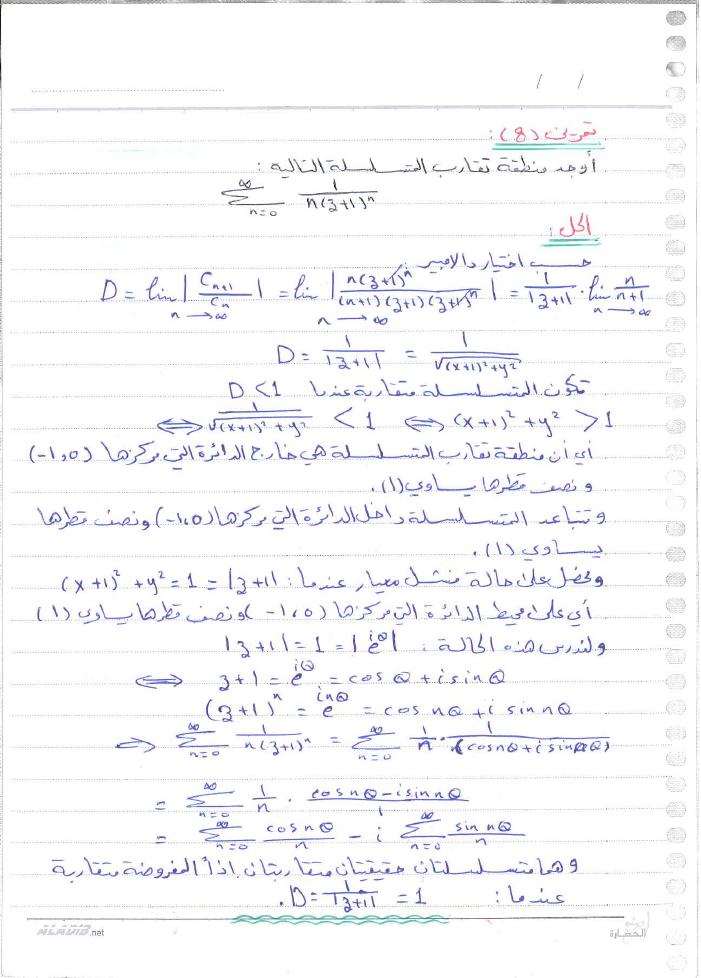 / /
تمرين (8):
أوجد منطقة تقارب المتسلسلة التالية:
∑_{n=0}^{∞} 1/(n(z+1)^n)
الحل:
حسب اختبار دالامبير
D = lim_{n→∞} |C_{n+1}/C_n| = lim_{n→∞} |n(z+1)^n/((n+1)(z+1)(z+1)^n)| = 1/|z+1| · lim_{n→∞} n/(n+1)
D = 1/|z+1| = 1/√((x+1)²+y²)
تكون المتسلسلة متقاربة عندما D<1
⇔ 1/√((x+1)²+y²) < 1 ⇔ (x+1)²+y² > 1
أي أن منطقة تقارب المتسلسلة هي خارج الدائرة التي مركزها (-1,0)
ونصف قطرها يساوي (1).
وتتباعد المتسلسلة داخل الدائرة التي مركزها (-1,0) ونصف قطرها
يساوي (1).
ونحصل على حالة فشل معيار عندما: (x+1)²+y²=1=|z+1|
أي على محيط الدائرة التي مركزها (-1,0) ونصف قطرها يساوي (1)
ولندرس هذه الحالة: |z+1|=1=|e^{iθ}|
⇔ z+1 = e^{iθ} = cosθ + i sinθ
(z+1)^n = e^{inθ} = cos nθ + i sin nθ
⇒ ∑_{n=0}^{∞} 1/(n(z+1)^n) = ∑_{n=0}^{∞} 1/n · 1/(cos nθ + i sin nθ)
= ∑_{n=0}^{∞} 1/n · (cos nθ - i sin nθ)/1
= ∑_{n=0}^{∞} cos nθ/n - i ∑_{n=0}^{∞} sin nθ/n
وهما متسلسلتان حقيقيتان متقاربتان إذاً المفروضة متقاربة
عندما: D = 1/|z+1| = 1.
ALADIB.net
الحضارة